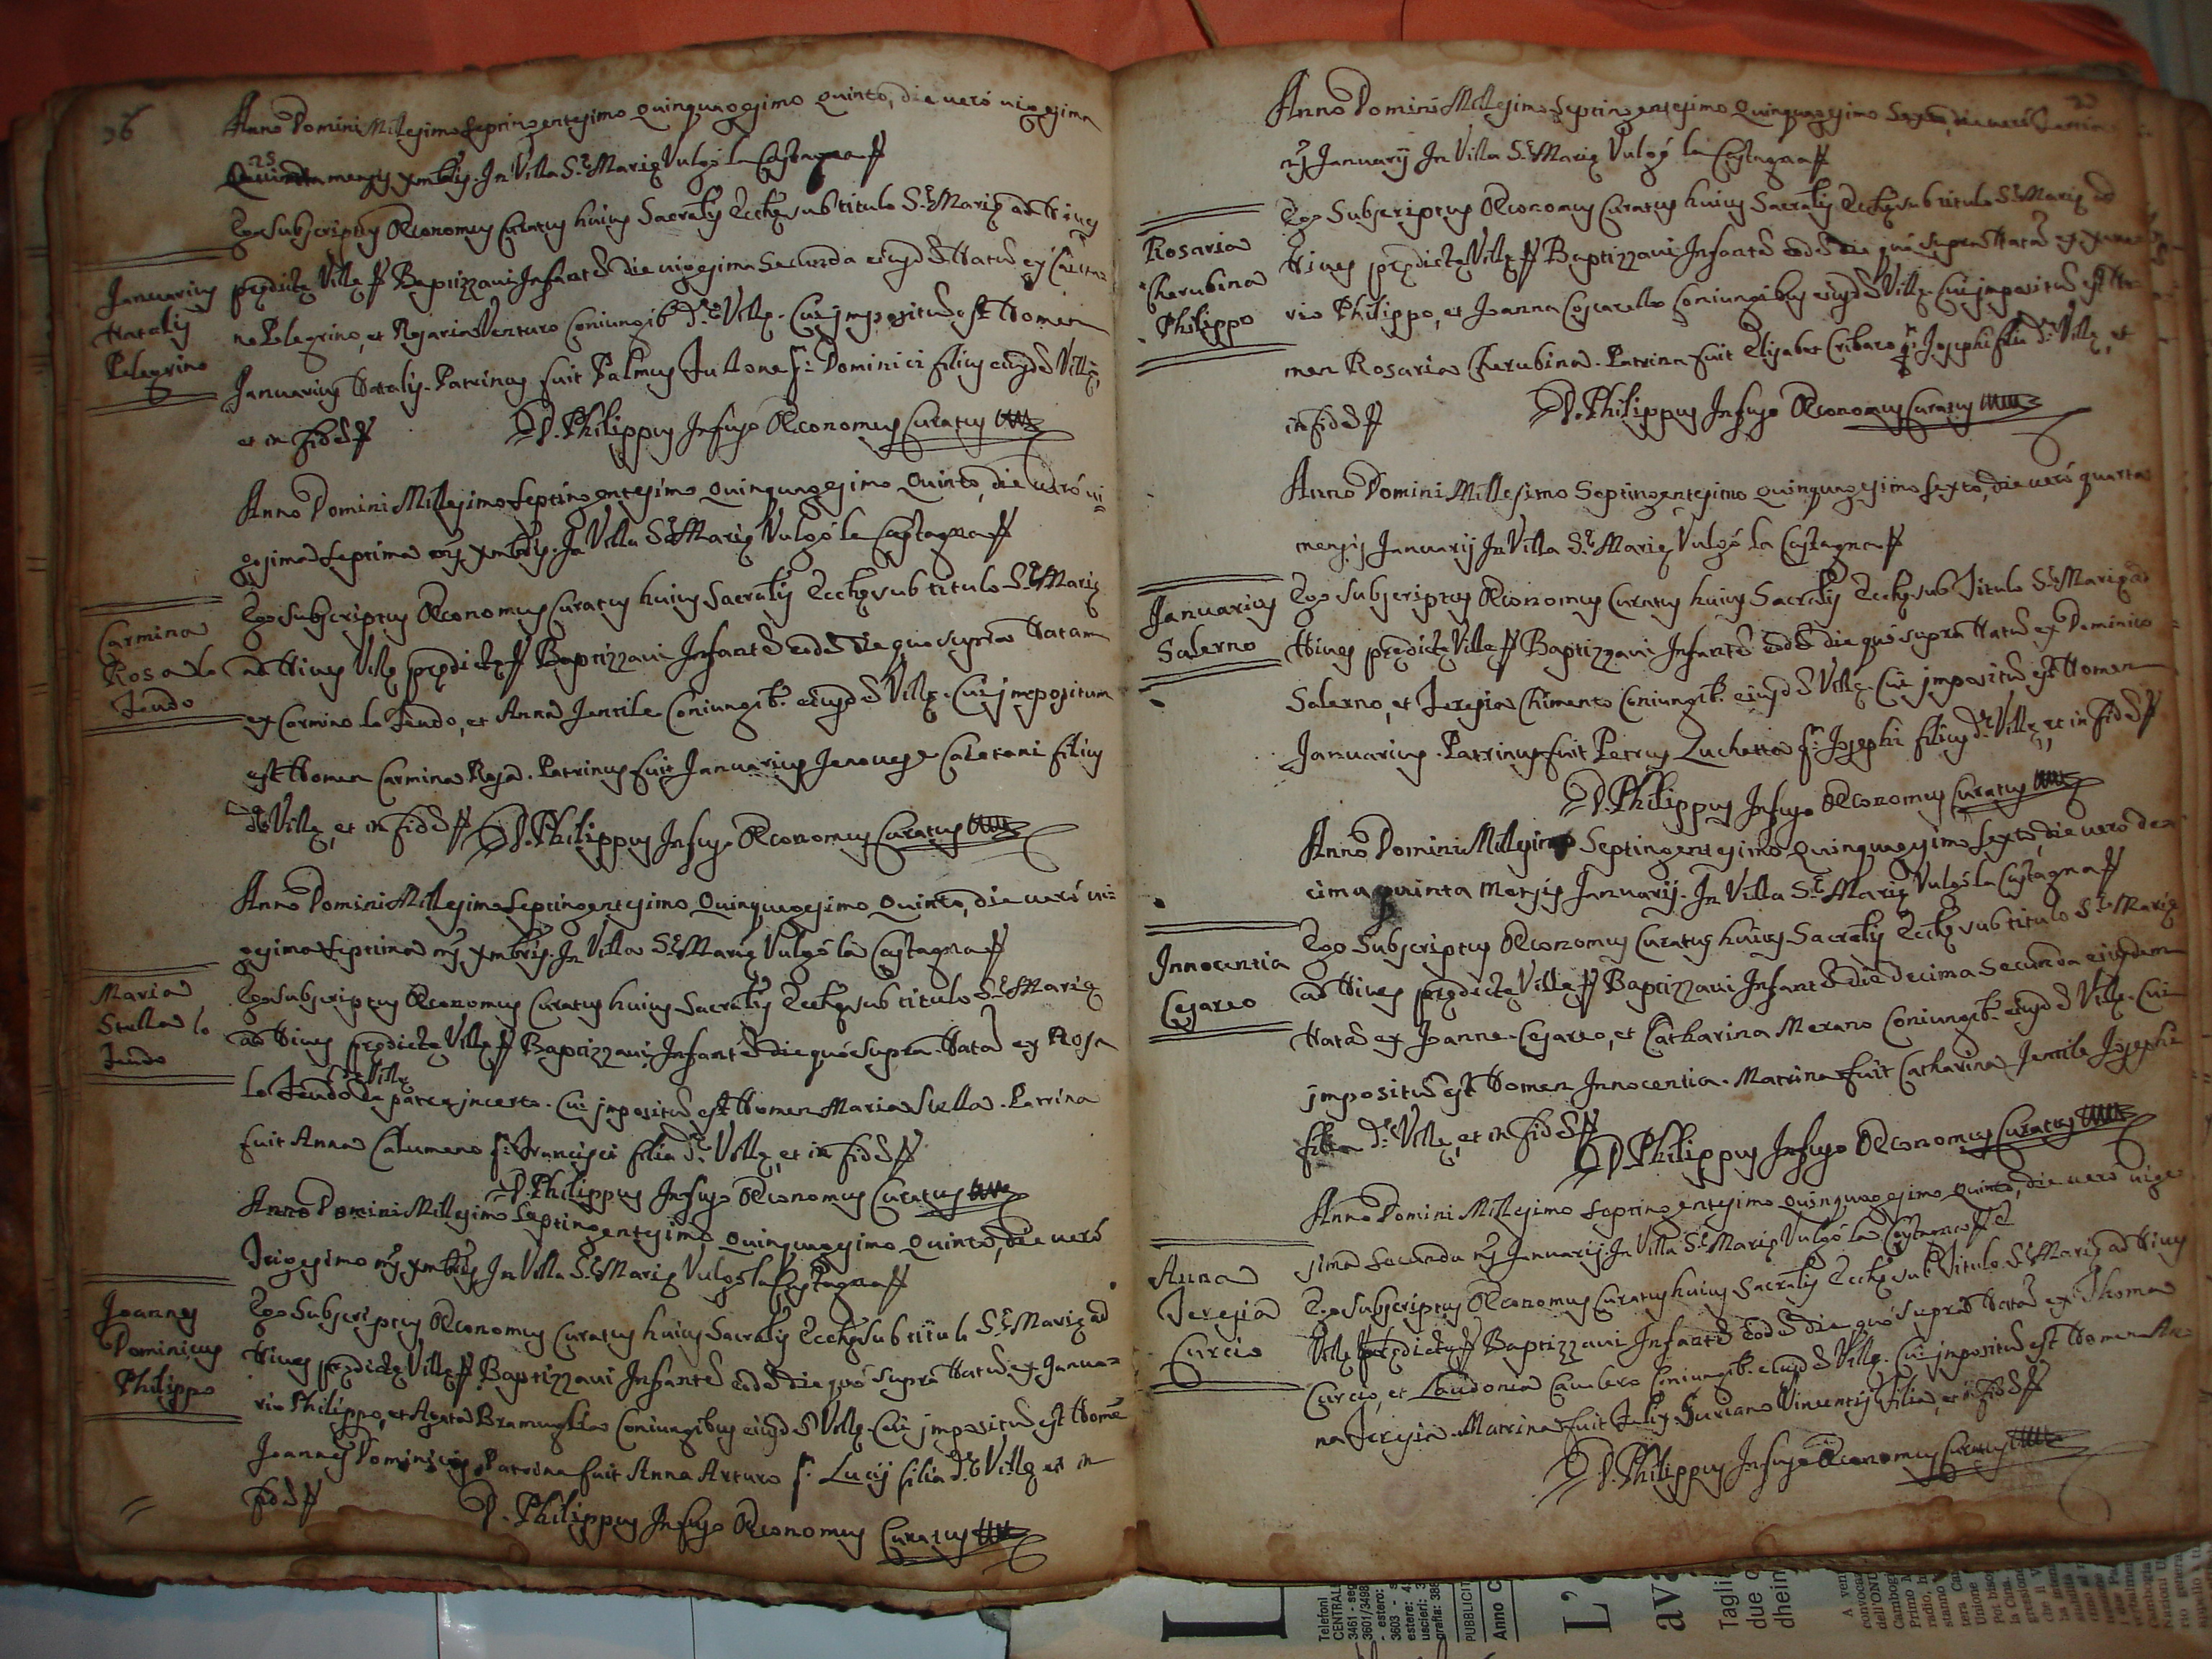 Anno Domini Millesimo Septingentesimo Quinquagesimo Quinto, die verò vigesima
25
mensis Xmbris. In Villa S.tę Marię Vulgò la Castagna
Ego Subscriptus Œconomus Curatus huius Sacralis Eccłę sub titulo S.tę Marię ad Nives
Januarius
Natalis
Pelegrino
prędictę Villę Baptizzavi Infantẽ die vigesima Secunda eiusdẽ Natũ ex Caieta=
no Pelegrino, et Rosaria Venturo Coniugib. d.ę Villę. Cui impositũ est Nomen
Januarius Natalis. Patrinus fuit Palmus Tullone Dominici filius eiusdẽ Villę,
et in fidẽ D. Philippus Infuso Œconomus Curatus
Anno Domini Millesimo Septingentesimo Quinquagesimo Quinto, die verò vi=
gesima Septima m̃s Xmbris. In Villa S.tę Marię Vulgò la Castagna
Carmina
Rosa lo
Feudo
Ego Subscriptus Œconomus Curatus huius Sacralis Eccłę sub titulo S.tę Marię
ad Nives Villę prędictę Baptizzavi Infantẽ eodẽ die quo supra Natam
ex Carmino lo Feudo, et Anna Jentile Coniugib. eiusdẽ Villę. Cui impositum
est Nomen Carmina Rosa. Patrinus fuit Januarius Jenovese Caietani filius
d.ę Villę, et in fidẽ D. Philippus Infuso Œconomus Curatus
Anno Domini Millesimo Septingentesimo Quinquagesimo Quinto, die verò vi=
gesima Septima m̃s Xmbris. In Villa S.tę Marię Vulgò la Castagna
Maria
Stella lo
Feudo
Ego Subscriptus Œconomus Curatus huius Sacralis Eccłę sub titulo S.tę Marię
ad Nives prędictę Villę Baptizzavi Infantẽ die quò supra Natã ex Rosa
d.ę Villę
lo Feudo patre incerto. Cui impositũ est Nomen Maria Stella. Patrina
fuit Anna Calumeno Francisci filia d.ę Villę, et in fidẽ
D. Philippus Infuso Œconomus Curatus
Anno Domini Millesimo Septingentesimo Quinquagesimo Quinto, die verò
Trigesimo m̃s Xmbris In Villa S.tę Marię Vulgò la Castagna
Joannes
Dominicus
Philippo
Ego Subscriptus Œconomus Curatus huius Sacralis Eccłę sub titulo S.tę Marię ad
Nives prędictę Villę Baptizzavi Infantẽ eodẽ die quò supra Natũ ex Janua=
rio Philippo, et Agata Coniugibus eiusdẽ Villę. Cui impositũ est Nomẽ
Joannes Dominicus. Patrina fuit Anna Arturo Lucij filia d.ę Villę et in
fidẽ D. Philippus Infuso Œconomus Curatus
Anno Domini Millesimo Septingentesimo Quinquagesimo Sexto, die verò
m̃s Januarij In Villa S.tę Marię Vulgò la Castagna
Rosaria
Cherubina
Philippo
Ego Subscriptus Œconomus Curatus huius Sacralis Eccłę sub titulo S.tę Marię ad
Nives prędictę Villę Baptizzavi Infantẽ eodẽ die quò supra Natã ex
rio Philippo, et Joanna Coscarello Coniugibus eiusdẽ Villę. Cui impositũ est No=
men Rosaria Cherubina. Patrina fuit Elisabet Cribaro Josephi filia d.ę Villę, et
in fidẽ D. Philippus Infuso Œconomus Curatus
Anno Domini Millesimo Septingentesimo Quinquagesimo Sexto, die verò quarta
mensis Januarij In Villa S.tę Marię Vulgò la Castagna
Januarius
Salerno
Ego Subscriptus Œconomus Curatus huius Sacralis Eccłę sub Titulo S.tę Marię ad
Nives prędictę Villę Baptizzavi Infantẽ eodẽ die quò supra Natũ ex Dominico
Salerno, et Teresia Chimento Coniugib. eiusdẽ Villę. Cui impositũ est Nomen
Januarius. Patrinus fuit Petrus Zuchetta Josephi filius d.ę Villę, et in fidẽ
D. Philippus Infuso Œconomus Curatus
Anno Domini Millesimo Septingentesimo Quinquagesimo Sexto, die verò de=
cima quinta Mensis Januarij. In Villa S.tę Marię Vulgò la Castagna
Innocentia
Cesareo
Ego Subscriptus Œconomus Curatus huius Sacralis Eccłę sub titulo S.tę Marię
ad Nives prędictę Villę Baptizzavi Infantẽ die decima Secunda eiusdem
Natã ex Joanne Cesareo, et Catharina Merano Coniugib. eiusdẽ Villę. Cui
impositũ est Nomen Innocentia. Matrina fuit Catharina Jentile Josephi
filia d.ę Villę, et in fidẽ
D. Philippus Infuso Œconomus Curatus
Anno Domini Millesimo Septingentesimo Quinquagesimo Quinto, die verò vige
sima Secunda m̃s Januarij. In Villa S.tę Marię Vulgò la Castagna
Anna
Teresia
Curcio
Ego Subscriptus Œconomus Curatus huius Sacralis Eccłę sub Titulo S.tę Marię ad Nives
Villę prędictę Baptizzavi Infantẽ eodẽ die quò supra Natã ex Thoma
Curcio, et Laudonia Coniugib. eiusdẽ Villę. Cui impositũ est Nomen An=
na Teresia. Matrina fuit Julia Suriano Vincentij filia, et in fidẽ
D. Philippus Infuso Œconomus Curatus
Telefoni
CENTRAL
PUBBLICIT
Anno C
L'
ava
Taglia
due
dhein